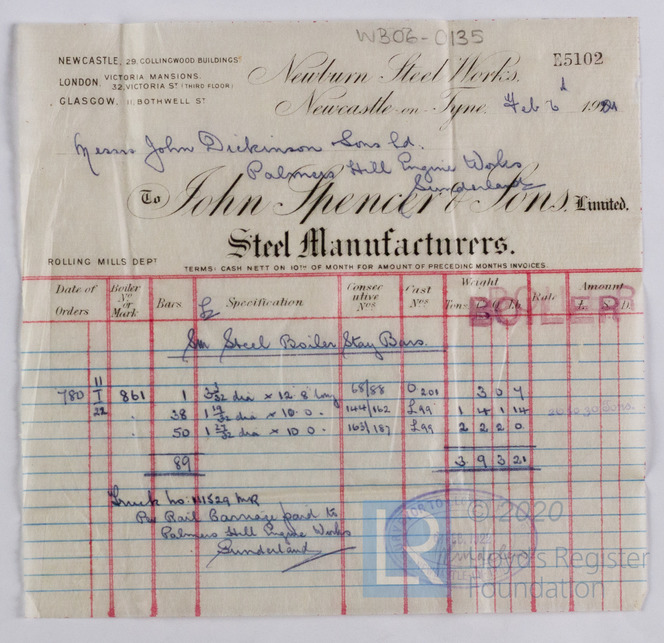 WB06-0135
NEWCASTLE, 29, COLLINGWOOD BUILDINGS.
LONDON, VICTORIA MANSIONS, 32, VICTORIA ST (THIRD FLOOR)
GLASGOW, 11, BOTHWELL ST
Newburn Steel Works,
E5102
Newcastle-on-Tyne, Feb 6 19
Messrs John Dickinson Sons Ld.
Palmers Hill Engine Works
Sunderland
To John Spencer & Sons, Limited.
Steel Manufacturers.
ROLLING MILLS DEPT
TERMS: CASH NETT ON 10TH OF MONTH FOR AMOUNT OF PRECEDING MONTHS INVOICES.
Date of Orders Boiler No or Mark Bars Specification Consecutive Nos Cast Nos Weight Tons Rate Amount £ S D
BOILER
Sm Steel Boiler Stay Bars.
780 11/1/22 861 1 dia × 12.8 long 68/88 O 201 3 0 7
38 dia × 10.0 144/162 L99 1 4 1 14
50 1 dia × 10 0 163/187 L99 2 2 2 0
89 3 9 3 21
Truck no: 111529 MR
Per Rail Carriage paid to
Palmers Hill Engine Works
Sunderland
SURVEYOR TO
LR
© 2020
Lloyd's Register
Foundation